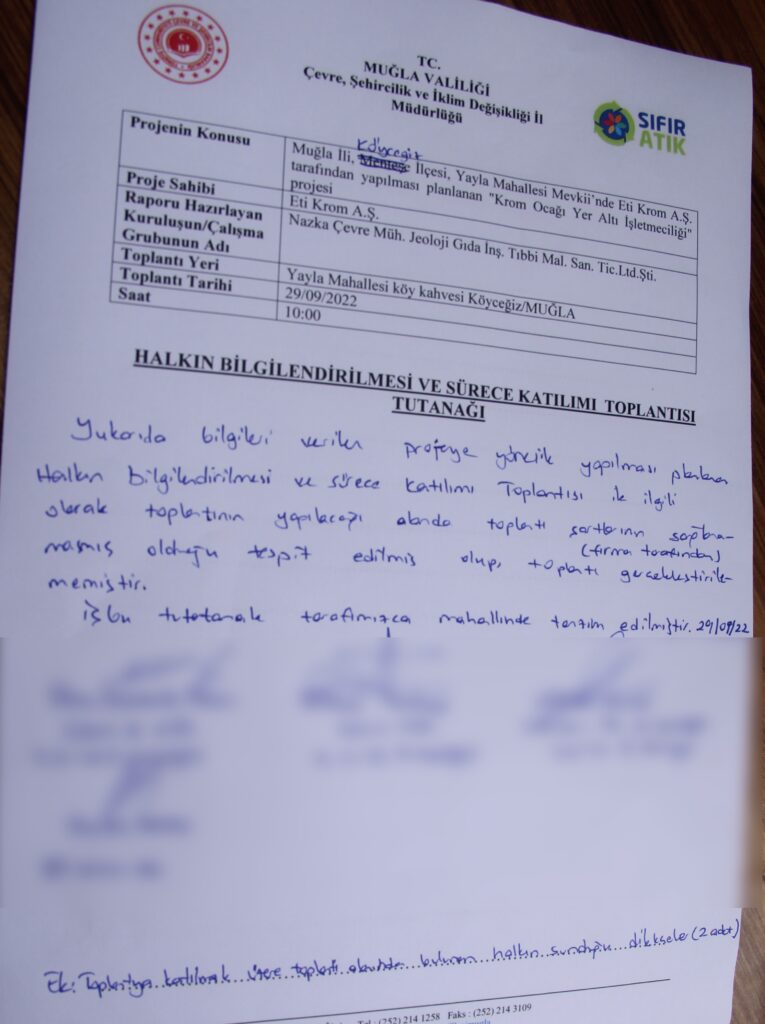 TC.
MUĞLA VALİLİĞİ
Çevre, Şehircilik ve İklim Değişikliği İl
Müdürlüğü
SIFIR
ATIK
Projenin Konusu
Köyceğiz
Muğla İli, Menteşe İlçesi, Yayla Mahallesi Mevkii'nde Eti Krom A.Ş.
tarafından yapılması planlanan "Krom Ocağı Yer Altı İşletmeciliği"
projesi
Proje Sahibi
Eti Krom A.Ş.
Raporu Hazırlayan
Kuruluşun/Çalışma
Grubunun Adı
Nazka Çevre Müh. Jeoloji Gıda İnş. Tıbbi Mal. San. Tic.Ltd.Şti.
Toplantı Yeri
Yayla Mahallesi köy kahvesi Köyceğiz/MUĞLA
Toplantı Tarihi
29/09/2022
Saat
10:00
HALKIN BİLGİLENDİRİLMESİ VE SÜRECE KATILIMI TOPLANTISI
TUTANAĞI
Yukarıda bilgileri verilen projeye yönelik yapılması planlanan
Halkın bilgilendirilmesi ve sürece Katılımı Toplantısı ile ilgili
olarak toplantının yapılacağı alanda toplantı şartlarının sağlana-
mamış olduğu tespit edilmiş olup, (firma tarafından) toplantı gerçekleştirile-
memiştir.
İşbu tutotanak tarafımızca mahallinde tanzim edilmiştir. 29/09/22
Ek: Toplantıya katılmak üzere toplantı alanında bulunan halkın sunduğu dilekçeler (2 adet)
Tel : (252) 214 1258 Faks : (252) 214 3109